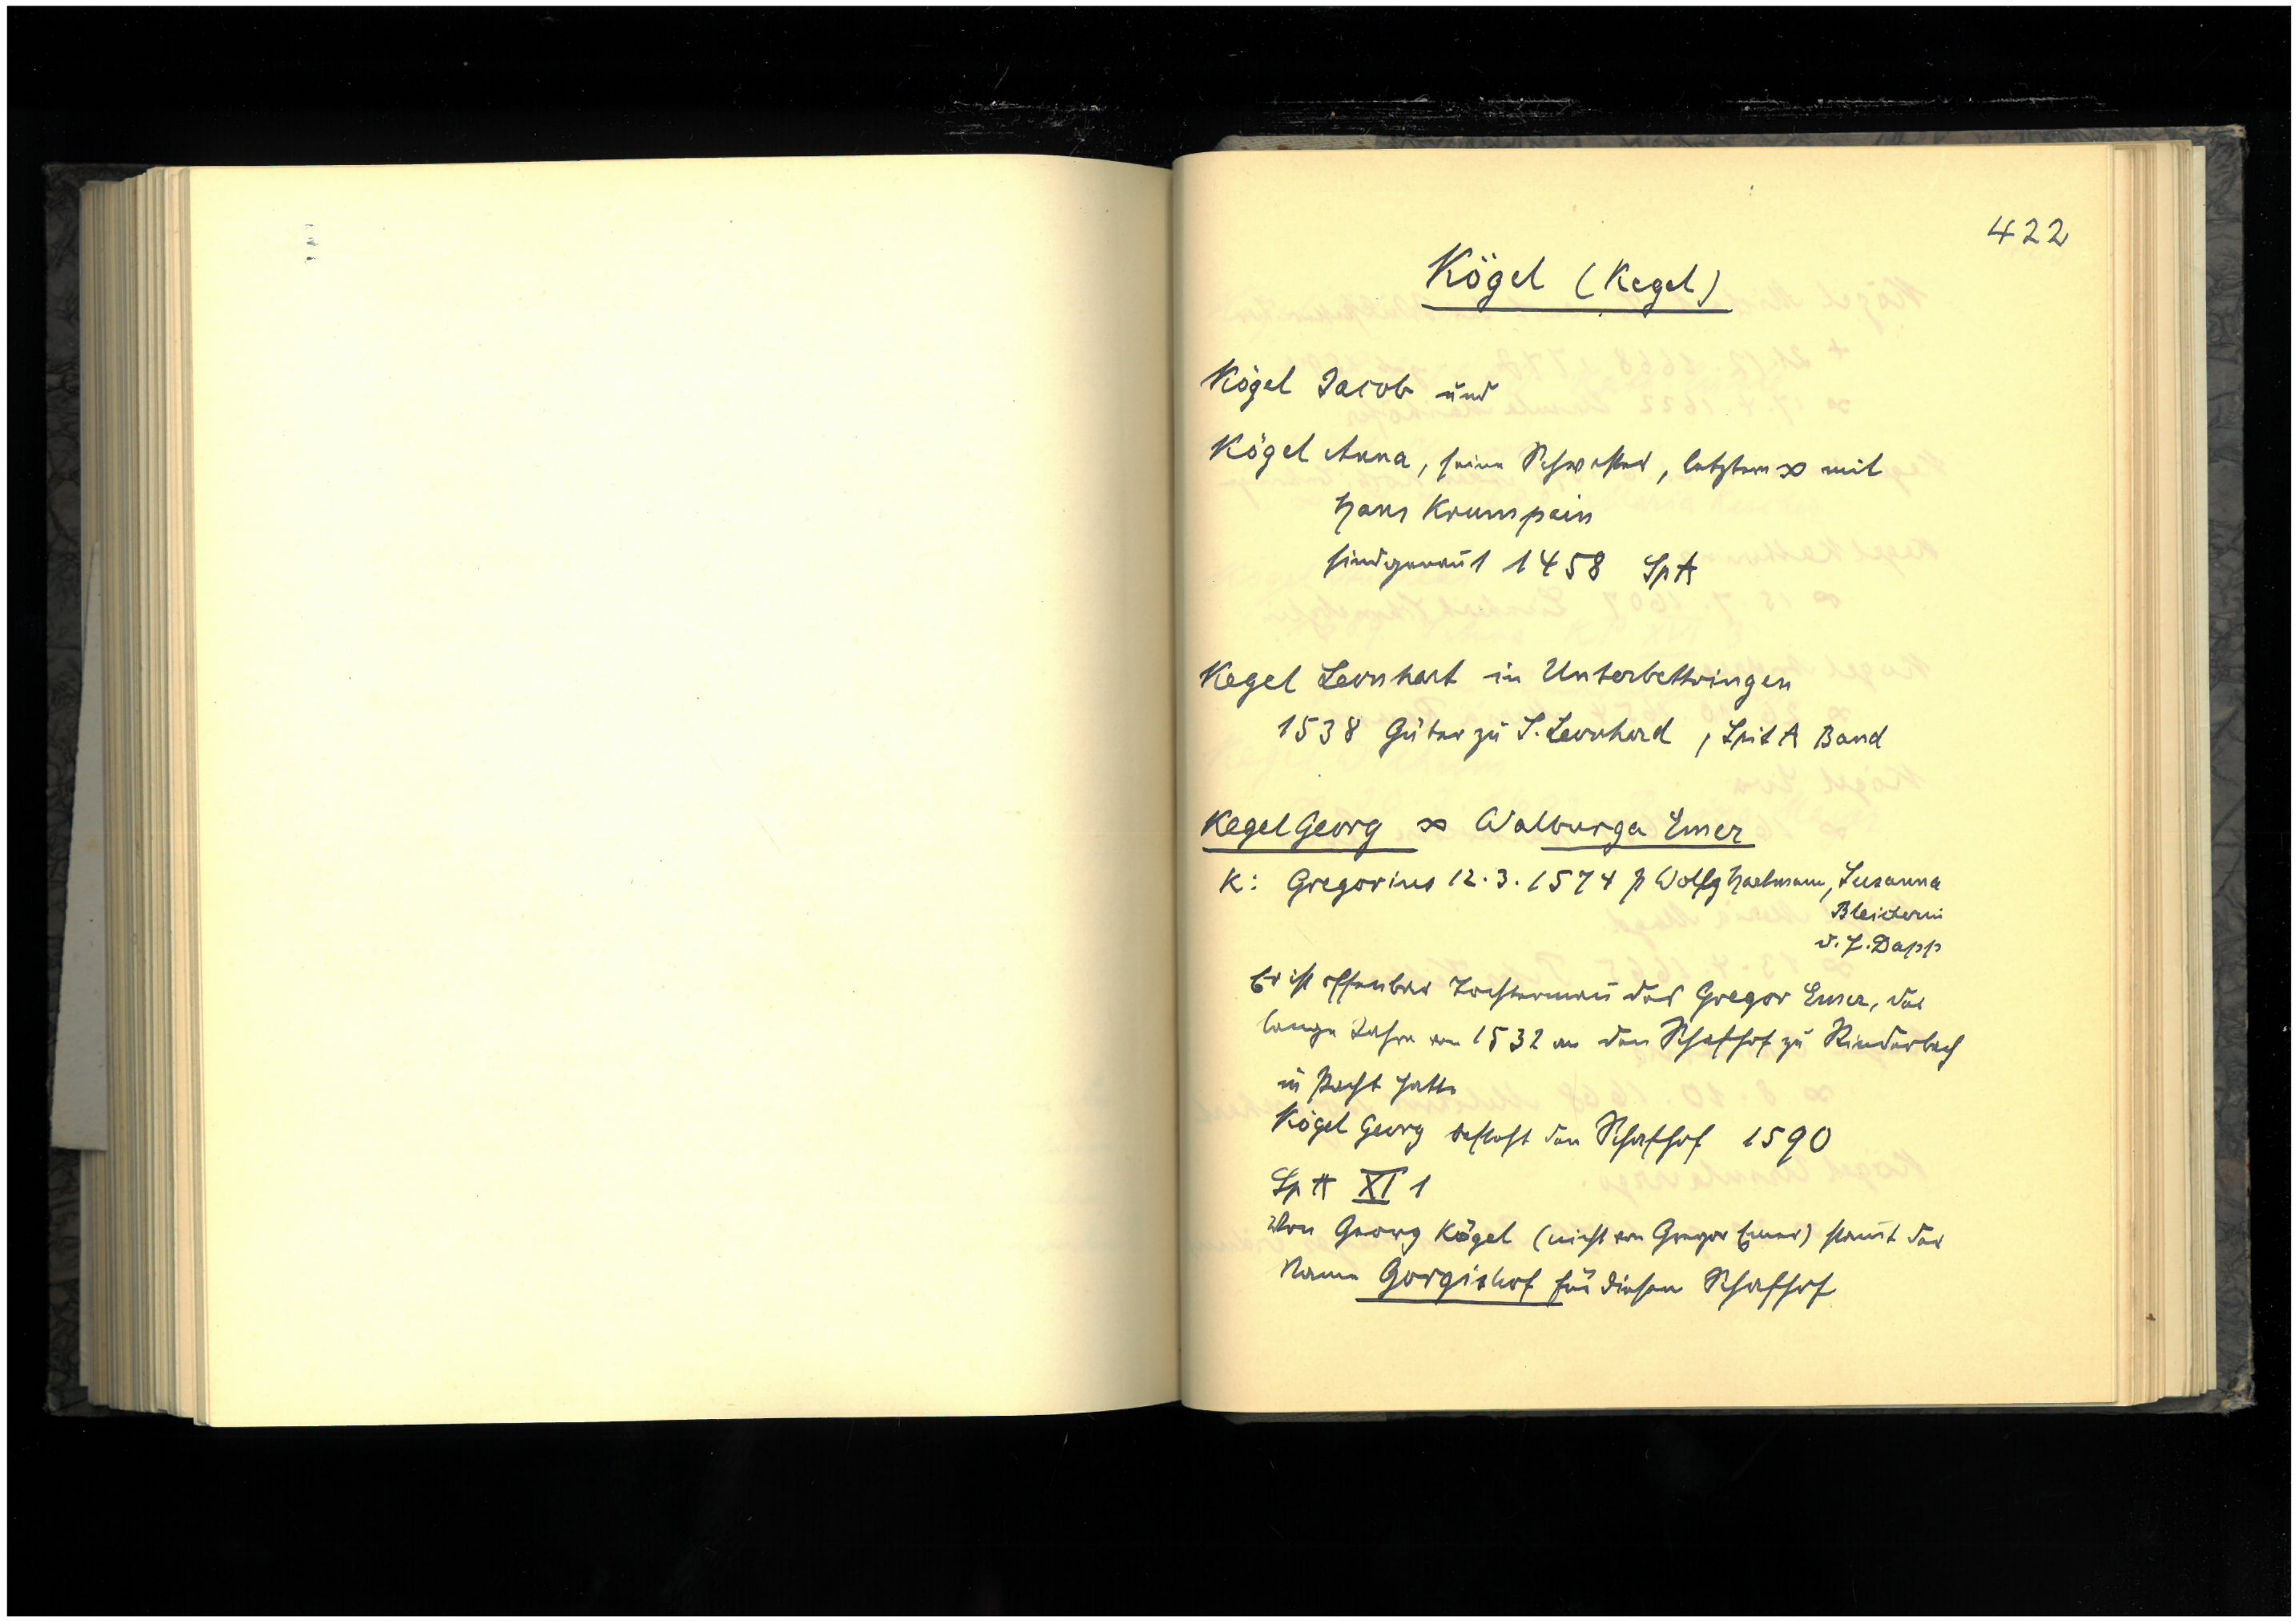 422
Kögel (Kegel)
Kögel Jacob und
Kögel Anna, seine Schwester, letztere ∞ mit
Hans Krumpein
sind genannt 1458 SpA
Kegel Leonhart in Unterbettringen
1538 Güter zu S. Leonhard, Spit A Band
Kegel Georg ∞ Walburga Emer
K: Gregorius 12.3.1574 p Wolfg Hartmann, Susanna
v. J. Dapp
Er ist offenbar Tochtermann des Gregor Emer, der
lange Jahre von 1532 an den Schafhof zu Rinderbach
in Pacht hatte
Kögel Georg besteht den Schafhof 1590
SpA XI 1
Von Georg Kögel (nicht von Gregor Emer) stammt der
Name Gorgishof für diesen Schafhof